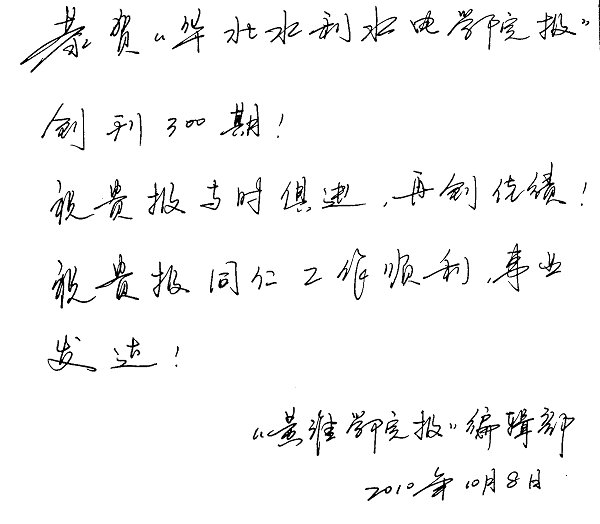 恭贺“华北水利水电学院报”
创刊300期！
祝贵报与时俱进，再创佳绩！
祝贵报同仁工作顺利，事业
发达！
“黄淮学院报”编辑部
2010年10月8日